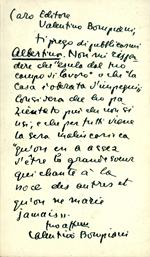 Caro Editore
Valentino Bompiani,
ti prego di pubblicarmi
Albertina. Non mi rispon
dere che "esula dal tuo
campo di lavoro" o che "la
Casa è oberata d'impegni".
Considera che ho pa
zientato più che non si
usi, e che per tutti viene
la sera malinconica
qu'on en a assez
d'être la grande soeur
qui chante à la
noce des autres et
qu'on ne marie
jamais...
tuo aff.mo
Valentino Bompiani